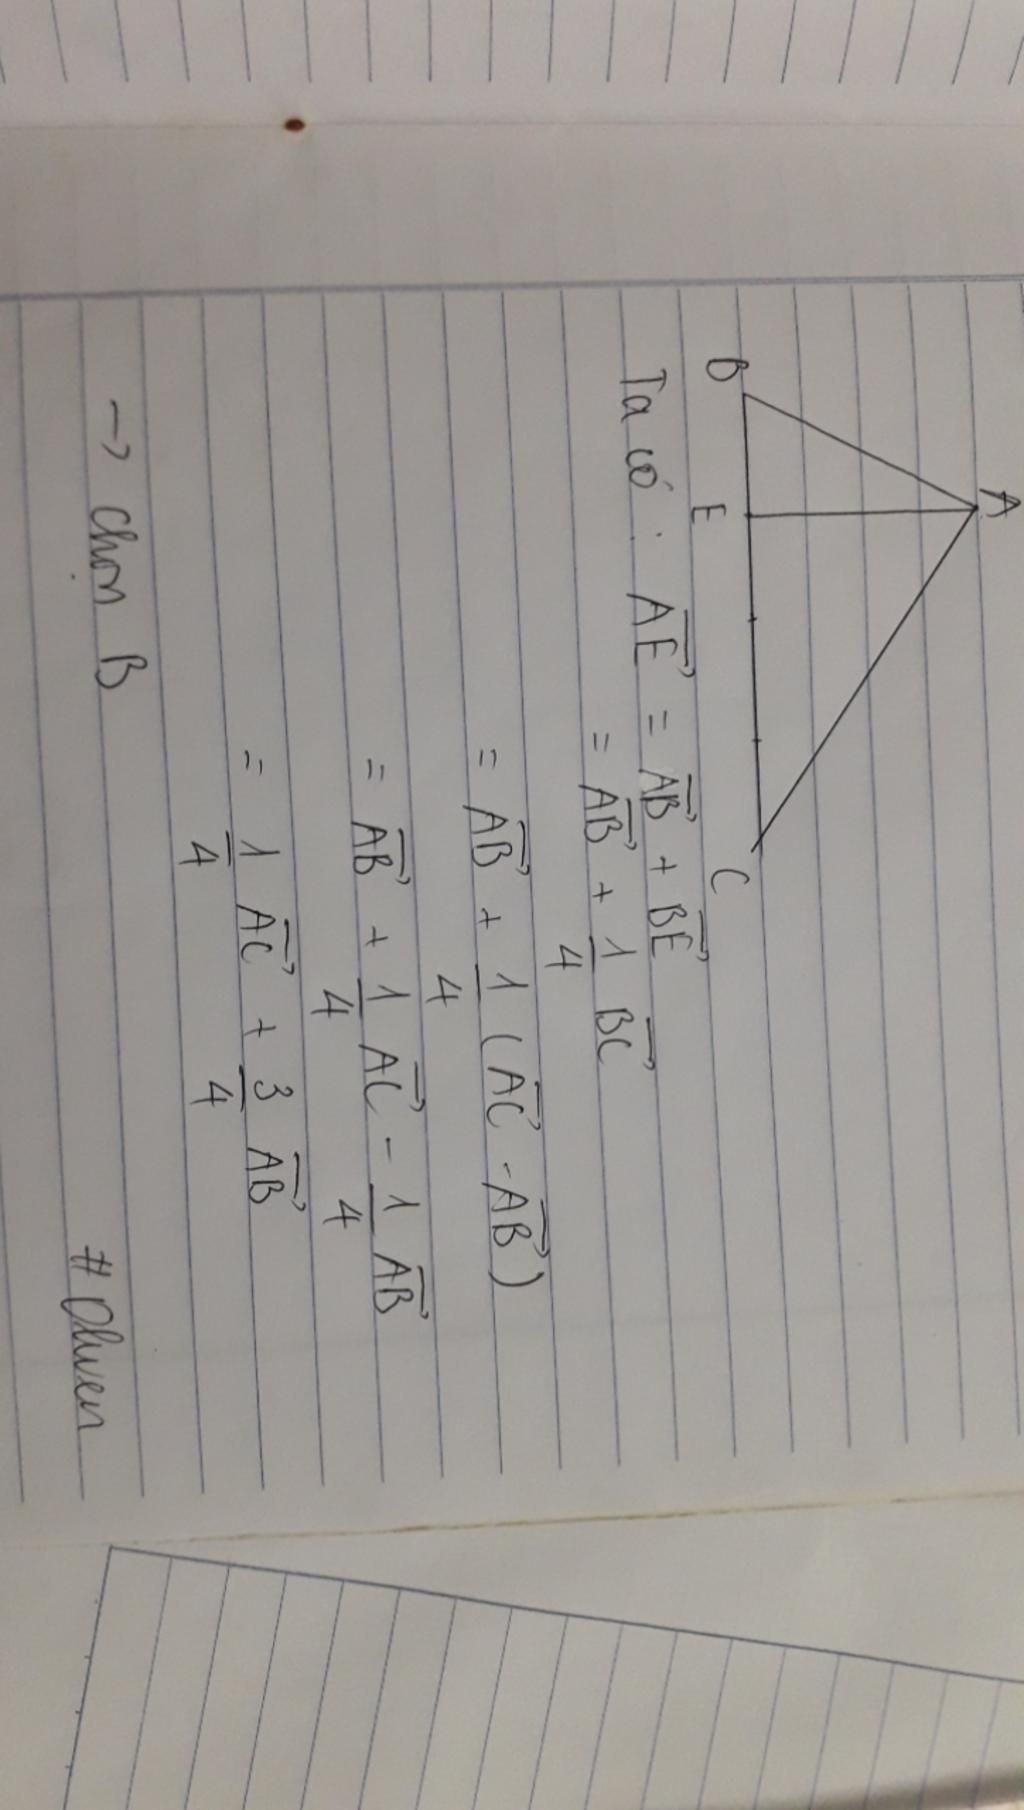 A
B E C
Ta có : $\overrightarrow{AE} = \overrightarrow{AB} + \overrightarrow{BE}$
$= \overrightarrow{AB} + \frac{1}{4} \overrightarrow{BC}$
$= \overrightarrow{AB} + \frac{1}{4} (\overrightarrow{AC} - \overrightarrow{AB})$
$= \overrightarrow{AB} + \frac{1}{4} \overrightarrow{AC} - \frac{1}{4} \overrightarrow{AB}$
$= \frac{1}{4} \overrightarrow{AC} + \frac{3}{4} \overrightarrow{AB}$
→ Chọn B